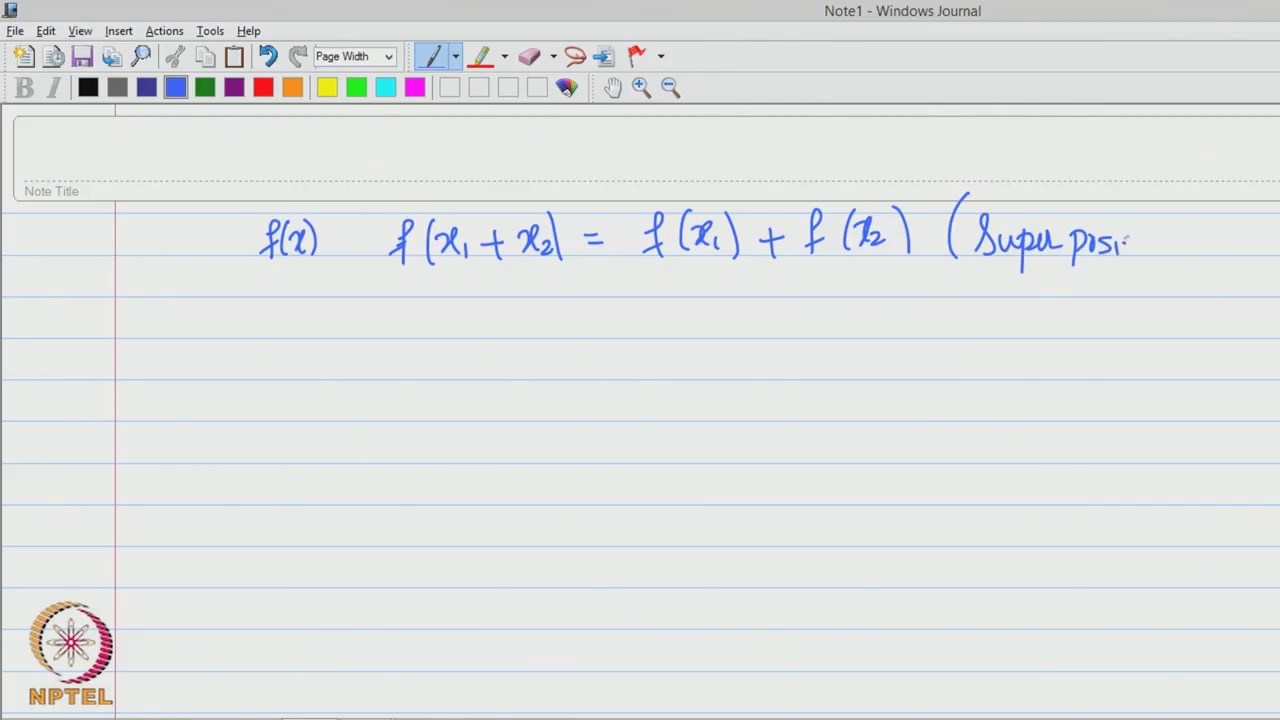 Note1 - Windows Journal
File Edit View Insert Actions Tools Help
Page Width
B I
Note Title
f(x) f(x₁ + x₂) = f(x₁) + f(x₂) (Superposi
NPTEL